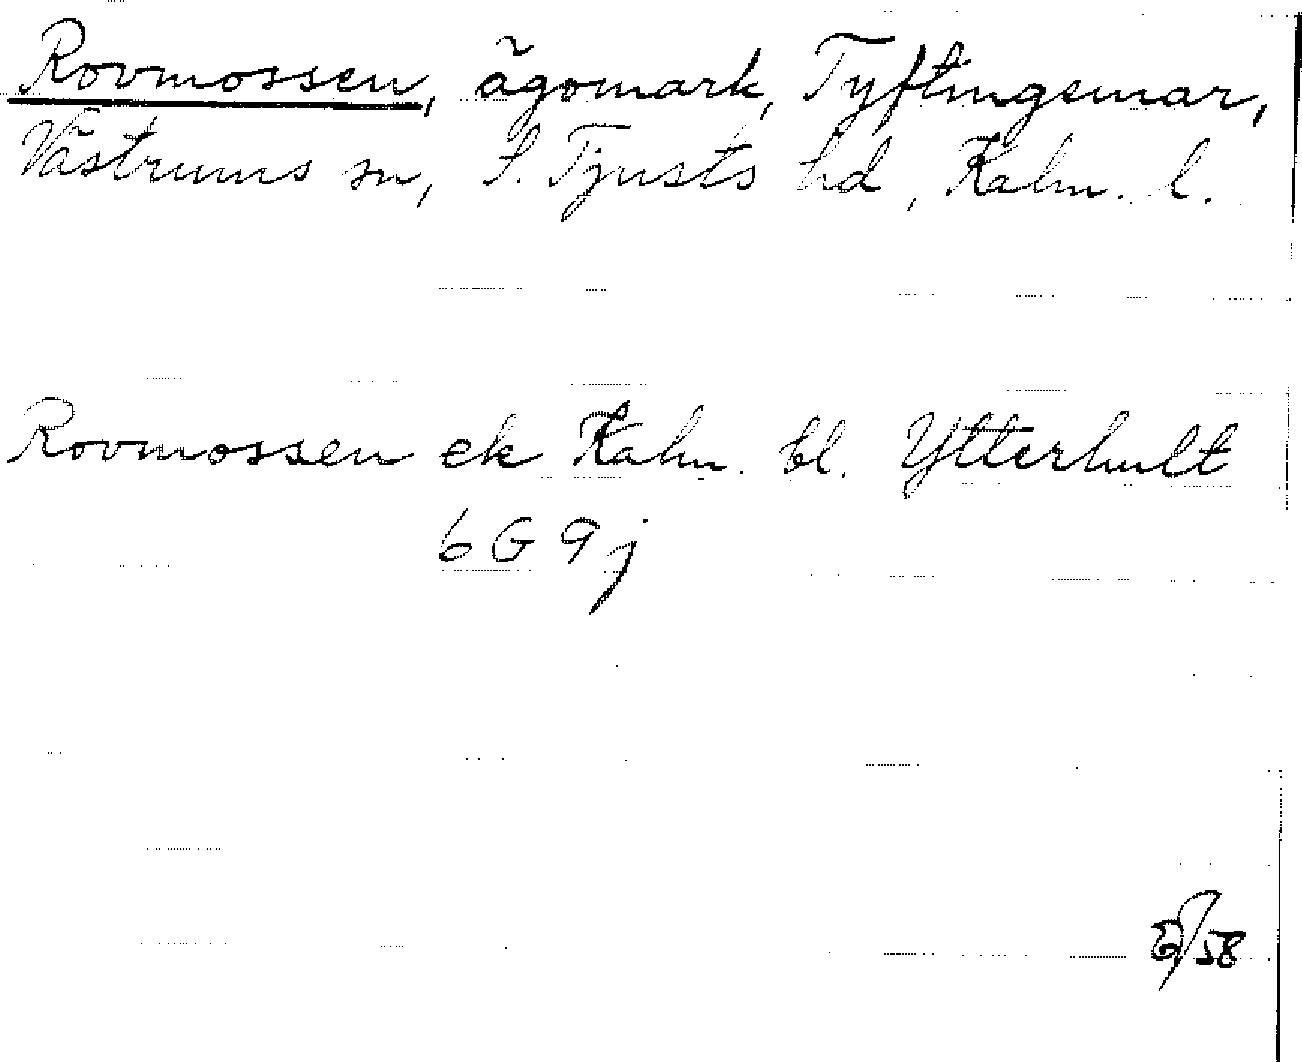 Rovmossen, ägomark, Tyftingsmar,
Västrums sn, S. Tjusts hd, Kalm. l.
Rovmossen ek Kalm. bl. Ytterhult
6 G 9 j
/58